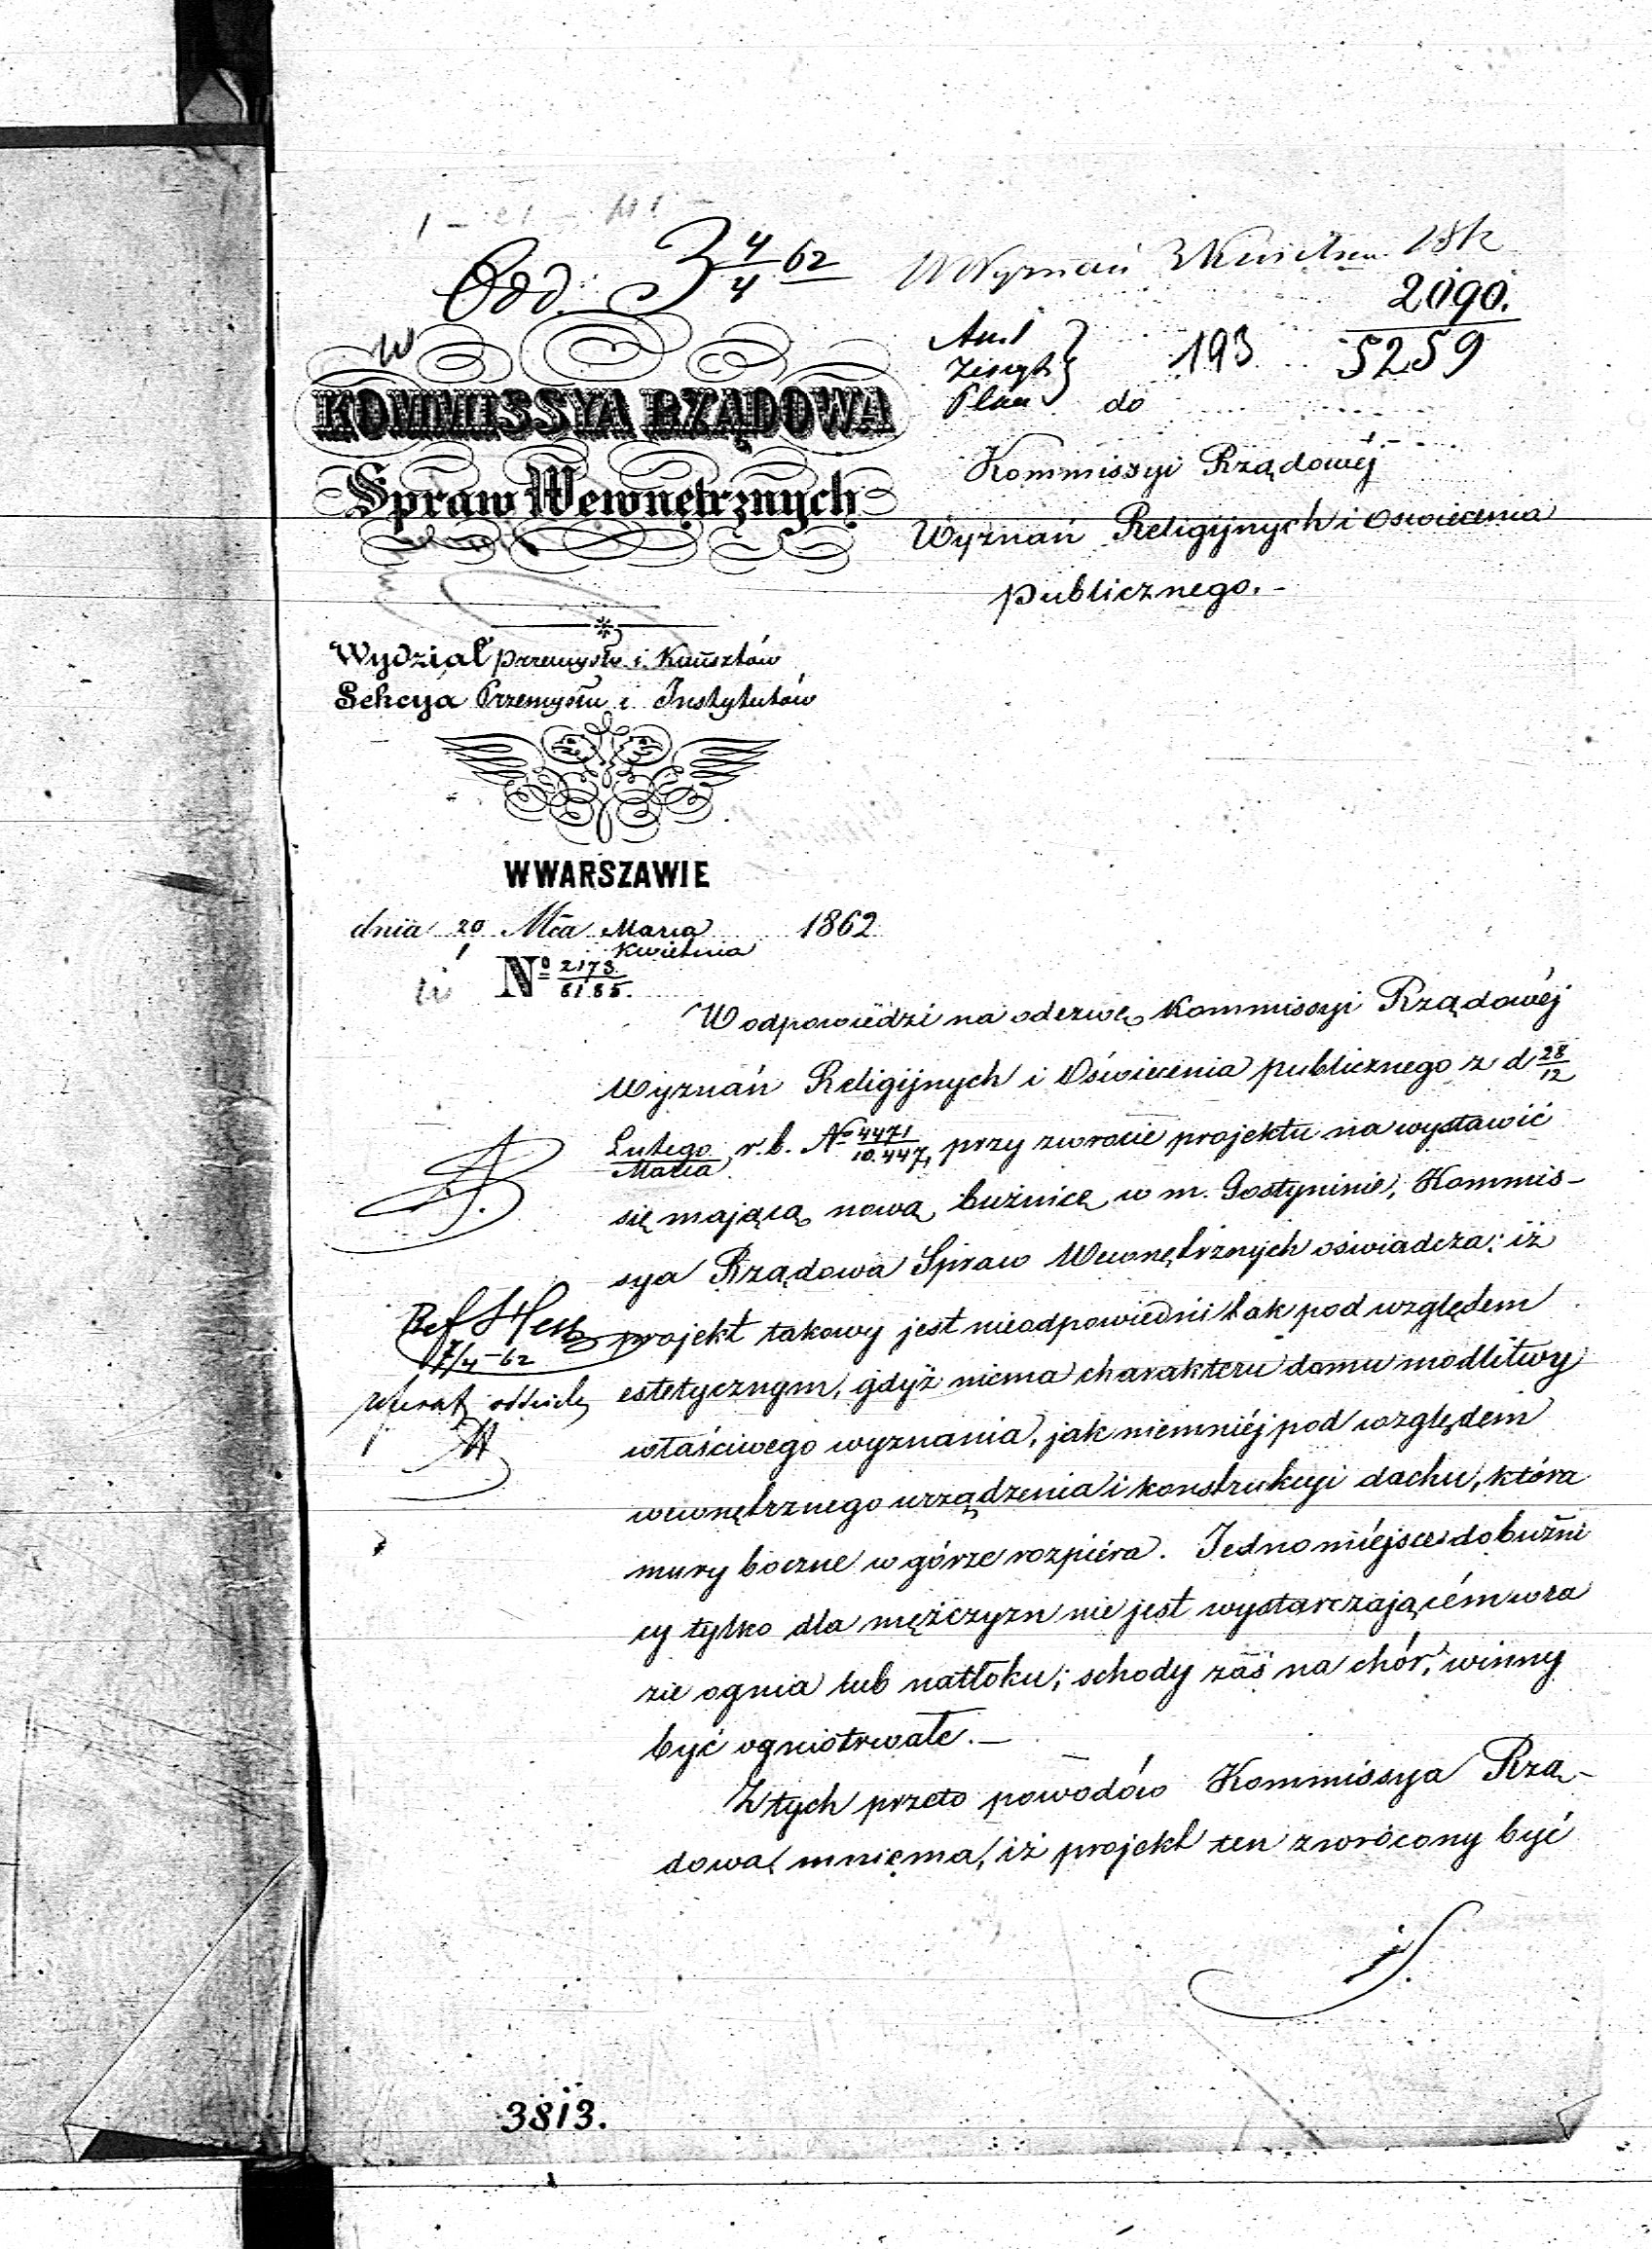 Odd. 3 4/4 62
W Wyznań 3 Kwietnia 1862
2090.
5259
193
Plan do
KOMMISSYA RZĄDOWA
Spraw Wewnętrznych
Kommissyi Rządowéj
Wyznań Religijnych i Oświecenia
publicznego.-
Wydział Przemysłu i Kunsztów
Sekcya Przemysłu i Instytutów
W WARSZAWIE
dnia 20/1 Mca Marca/Kwietnia 1862
No 2173/6185.
W odpowiedzi na odezwę Kommissyi Rządowéj
Wyznań Religijnych i Oświecenia publicznego z d 28/12
Lutego/Marca r. b. No 4471/10.447, przy zwrocie projektu na wystawić
się mającą nową bużnicę w m. Gostyninie, Kommis-
sya Rządowa Spraw Wewnętrznych oświadcza: iż
projekt takowy jest nieodpowiedni tak pod względem
estetycznym, gdyż niema charakteru domu modlitwy
właściwego wyznania, jak niemniéj pod względem
wewnętrznego urządzenia i konstrukcyi dachu, która
mury boczne w górze rozpiéra. Jedno miéjsce do bużni
cy tylko dla mężczyzn nie jest wystarczającém w ra
zie ognia lub natłoku; schody zaś na chór, winny
być ogniotrwałe.-
Z tych przeto powodów Kommissya Rzą-
dowa mniema, iż projekt ten zwrócony być
Ref Hess
7/4 -62
3813.